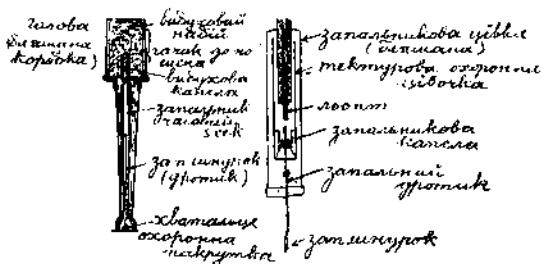 голова
(бляшана
коробка)
вибуховий
набій
гачик до по
яска
вибухова
капсля
запальник
часовий
5 сек
зап шнурок
(дротик)
хватальце
охоронна
накрутка
запальникова цівка
(бляшана)
тектурова охоронна
цівочка
льонт
запальникова
капсля
запальний
дротик
зап шнурок